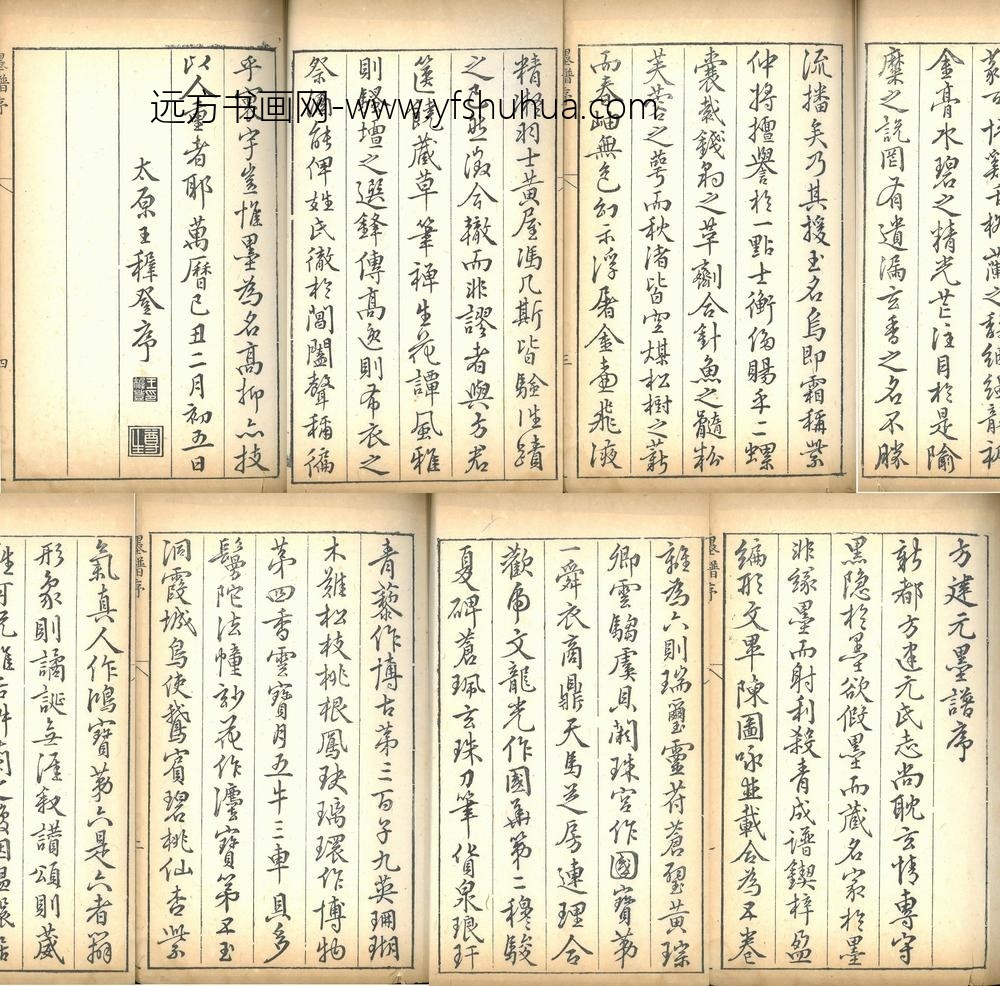 远方书画网-www.yfshuhua.com
方建元墨譜序
新都方建元氏志尚耽玄情專守
黑隐於墨欲假墨而藏名家於墨
非緣墨而射利殺青成譜鍥梓盈
編形文畢陳圖咏並載合為五卷
墨譜序
離為六則瑞璽靈苻蒼璧黃琮
卿雲騶虞貝闕珠宮作國寶苐
一舜衣商鼎天馬芝房連理合
歡虎文龍光作國華苐二穆駿
夏碑蒼珮玄珠刀筆貨泉琅玕
青藜作博古苐三百子九英珊瑚
木難松枝桃根鳳玦璃環作博物
苐四香雲寶月五牛三車貝多
鬘陀法幢妙花作灋寶苐五玉
洞霞城烏使鵞賓碧桃仙杏紫
墨譜序
二
氣真人作鴻寶苐六是六者辭
形象則譎誕無涯叙讚頌則葳
金膏水碧之精光茫注目於是隃
糜之說罔有遺漏玄香之名不勝
流播矣乃其授玉名烏即霜稱紫
仲將擅譽於一點士衡侈賜乎二螺
囊裁錢翁之草劑合針魚之髓粉
芙蓉之萼而秋渚皆空煤松樹之薪
而春岫無色幻示浮屠金壺飛液
墨譜序
三
精形羽士黃屋馮几斯皆驗往蹟
之乃然澂今轍而非謬者與方君
篋饒蔵草筆禅生花譚風雅
則騷壇之選鋒傳高逸則布衣之
祭酒能俾姓氏徹於閶闔聲稱徧
乎寰宇豈惟墨為名高抑亦技
以人重者耶萬曆己丑二月初五日
太原王穉登序
墨譜序
四